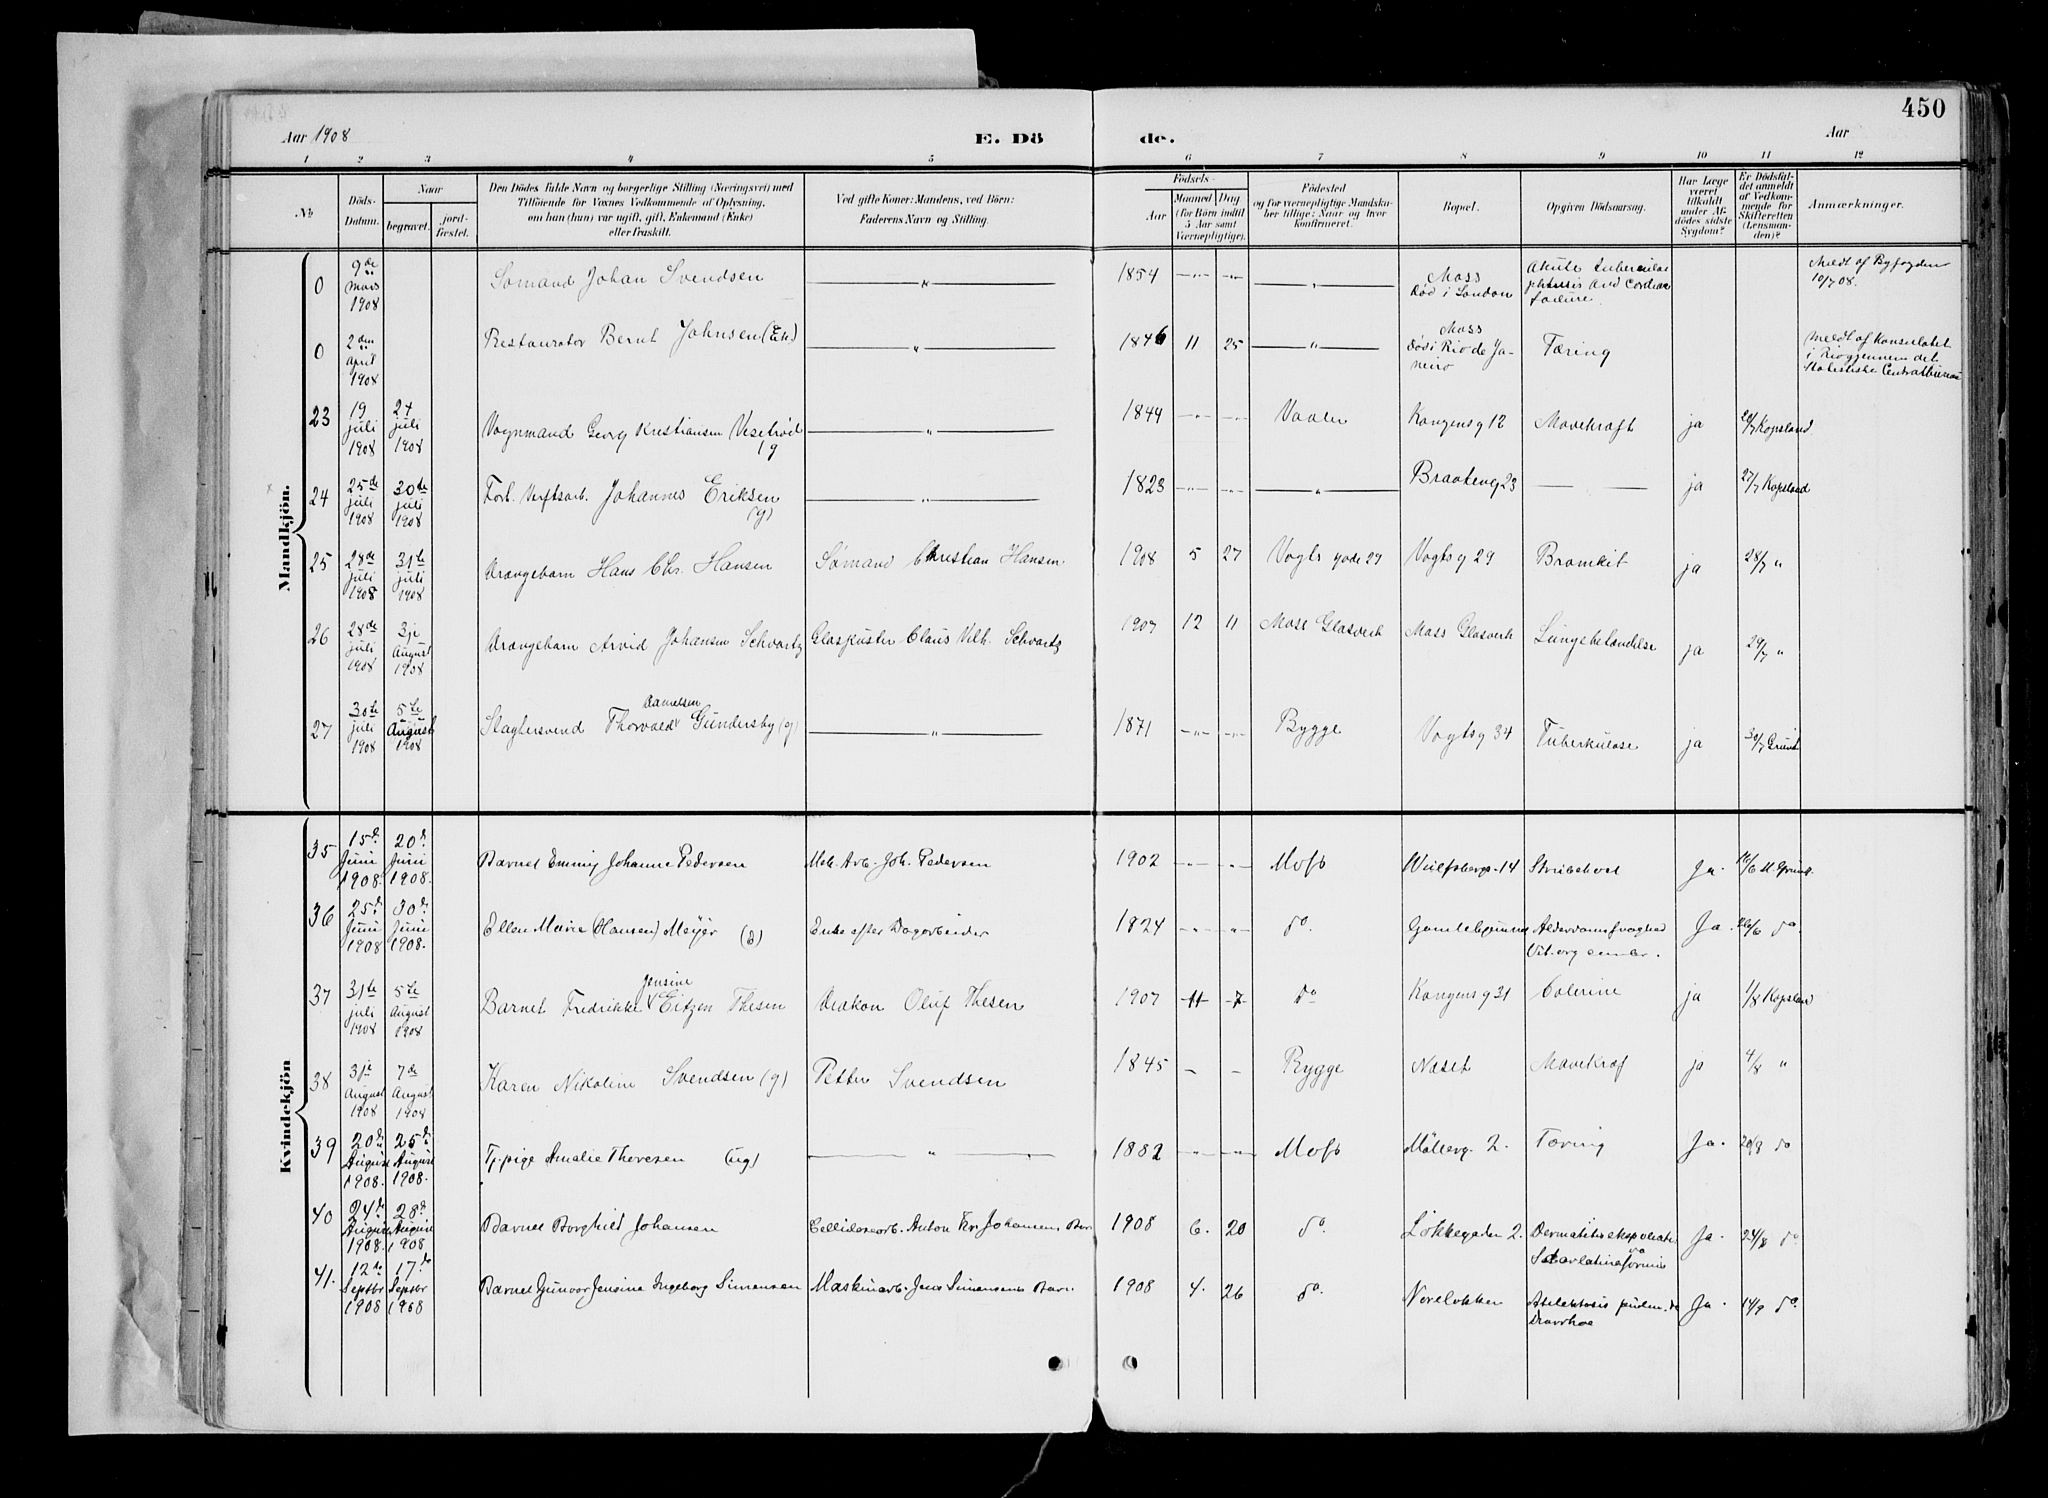 450
Aar 1908
E. Dö
de.
Aar
1 2 3 4 5 6 7 8 9 10 11 12
№
Döds-Datum.
Naar
begravet.
jord-fæstet.
Den Dödes fulde Navn og borgerlige Stilling (Næringsvei) med
Tilföiende for Voxnes Vedkommende af Oplysning,
om han (hun) var ugift, gift, Enkemand (Enke)
eller fraskilt.
Ved gifte Koner: Mandens, ved Börn:
Faderens Navn og Stilling.
Födsels-
Aar
Maaned
Dag
(for Börn indtil
5 Aar samt
Værnepligtige).
Födested
og for værnepligtige Mandskaber tillige: Naar og hvor konfirmeret.
Bopæl.
Opgiven Dödsaarsag.
Har Læge været tilkaldt under Afdödes sidste Sygdom?
Er Dödsfaldet anmeldt af Vedkommende for Skifteretten (Lensmanden)?
Anmærkninger.
Mandkjön.
0 9de Mars 1908 Sømand Johan Svendsen — " — 1854 — " — — " — — " — Moss Død i London Akute tuberculae phtissis and Cardiac failure. Meldt af Byfogden 10/7 08.
0 2den April 1908 Restauratør Bernt Johnsen (Ek) — " — 1846 11 25 — " — Moss Død i Rio de Janeiro Tæring Meldt af Konsulatet i Rio gjennem det statistiske Centralbureau
23 19 juli 1908 24 juli 1908 Vognmand Georg Kristiansen 19 — " — 1844 — " — — " — Vaaler Kongensg 12 Mavekræft ja Kopsland
24 25de juli 1908 30te juli 1908 Forh. Verftsarb. Johannes Eriksen (g) — " — 1823 — " — — " — — " — Braateng 23 — — ja 27/7 Kopsland
25 28de juli 1908 31te juli 1908 Drængebarn Hans Chr. Hansen Sømand Christian Hansen 1908 5 27 Vogts gade 29 Vogtsg 29 Bronkit ja 28/7 "
26 28de juli 1908 3je August 1908 Drængebarn Arvid Johansen Schvartz Glaspuster Claus Vilh. Schvartz 1907 12 11 Moss Glasverk Moss Glasverk Lungebetændelse ja 29/7 "
27 30te juli 1908 5te August 1908 Slagtersvend Thorvald Danielsen Gundersby (g) — " — 1871 — " — — " — Rygge Vogtsg 34 Tuberkulose ja 30/7 Grund
Kvindekjön
35 15d. Juni 1908. 20d. Juni 1908. Barnet Emmy Johanne Pedersen Mek. Arb. Joh. Pedersen 1902 — " — — " — Moss Wulfsbergs. 14 Strubehost Ja. 16/6
36 25d. Juni 1908 30d. Juni 1908. Ellen Marie (Hansen) Meyer (E) Enke efter Dagarbeider 1824 — " — — " — do. Alderdomssvaghed Ja. 26/6 do.
37 31te juli 1908 5te August 1908 Barnet Fredrikke Jensine Eitzen Thesen Diakon Oluf Thesen 1907 11 7 do Kongensg 31 Colerine ja 1/8 Kopsland
38 3je August 1908 7de August 1908 Karen Nikoline Svendsen (g) Petter Svendsen 1845 — — Rygge Næset Mavekræf ja 4/8 "
39 20d. August 1908. 25d. August 1908. Tj.pige Amalie Theresen (ug) — " — 1882 — " — — " — Moss Möllerg. 2. Tæring Ja. 20/8 do
40 24d. August 1908. 28d. August 1908 Barnet Borghild Johansen Cellulosearb. Anton Kr. Johansens Barn 1908 6. 20 do. Løkkegaden 2. Dermatitis Ja. 24/8 do.
41. 12d. Septbr 1908 17d. Septbr 1908 Barnet Gunvor Jensine Ingeborg Simensen Maskinarb. Jens Simensens Barn. 1908 4. 26 do. Noreløkken Atelektasis Ja. 14/9 do.